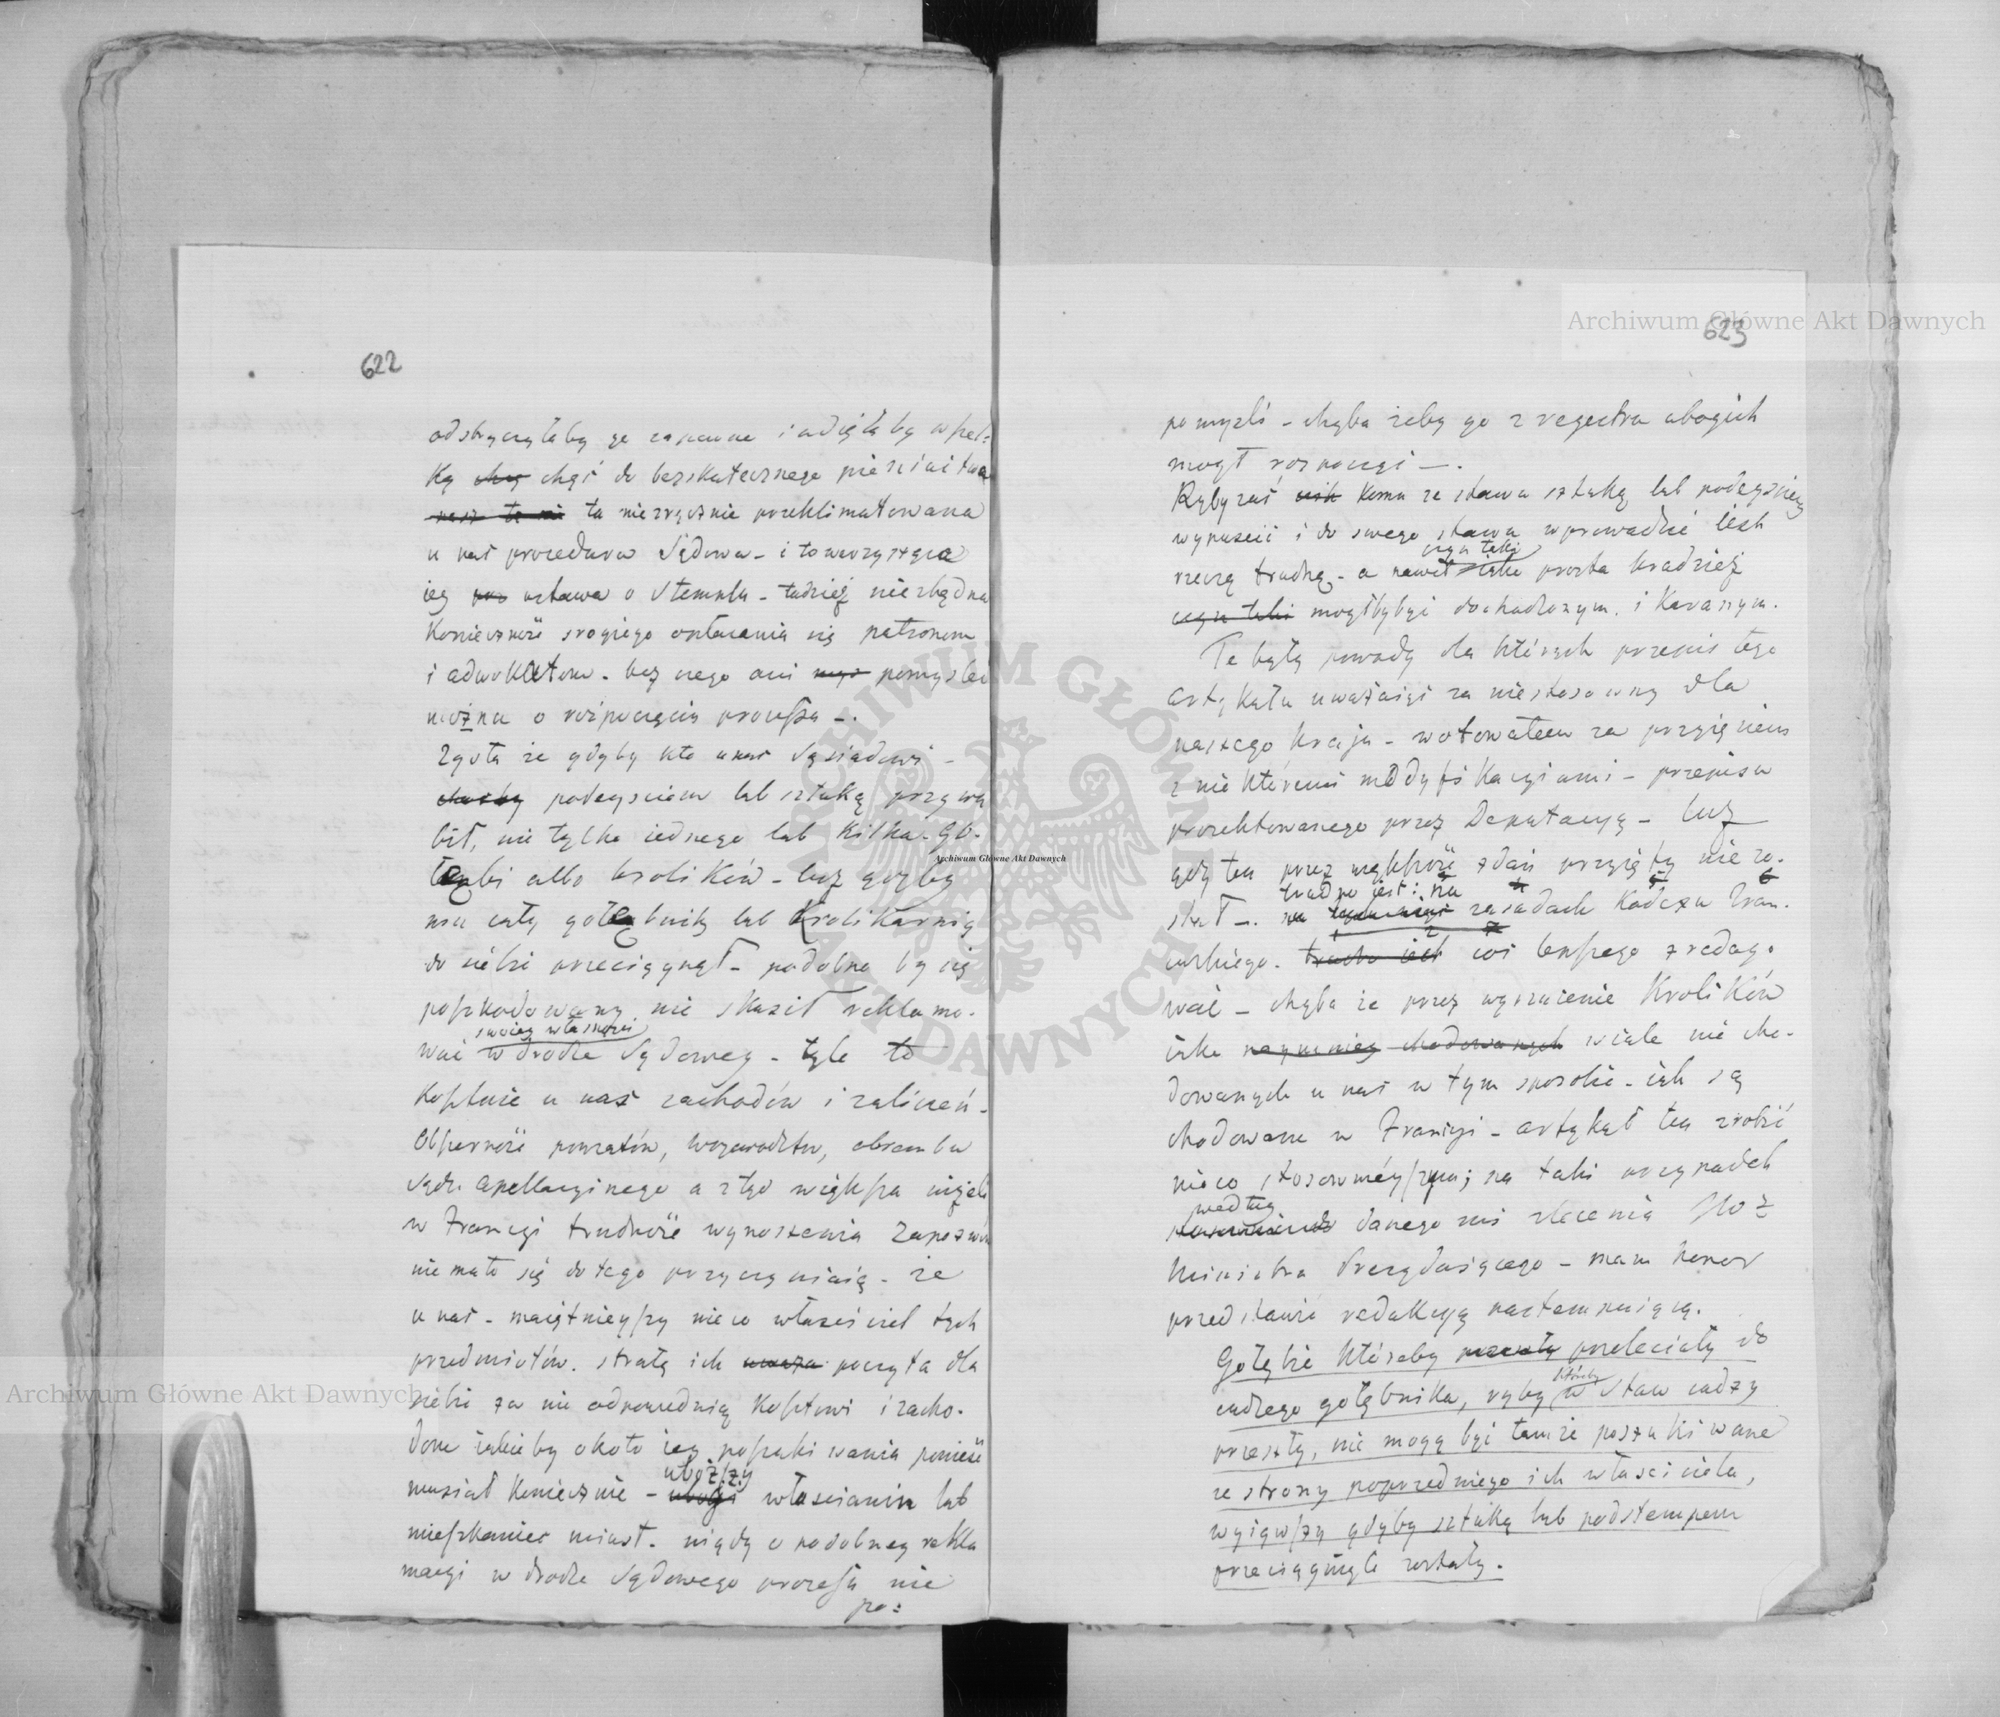 622
odstryczyłaby go zapewne i odięłaby wszel:
ką chęć do bezskutecznego pieniactwa
ta niezręcznie przeklimatowana
u nas procedura Sądowa - i towarzysząca
iey ustawa o Stemplu - tudzież niezbędna
Konieczność srogiego opłacania się patronom
i adwokatom - bez czego ani pomyśleć
można o rozpoczęciu processu -.
Zgoła że gdyby kto u nas Sąsiadowi -
podeyściem lub sztuką przywa
bił, nie tylko iednego lub kilka - Go-
łębi albo krolików - lecz gdyby
mu cały gołębnik lub Krolikarnią
do siebie przeciągnął - podobno by się
poszkodowany nie skusił reklamo-
swoiey własności
wać w drodze Sądowey - tyle to
kosztuie u nas zachodów i zaliczeń -
Obszerność powiatów, woiewodztw, obrembu
Sądu apellacyinego a z tąd większa niżeli
w Francyi trudność wynoszenia Zapozwów
nie mało się do tego przyczyniaią - że
u nas - maiętnieyszy nieco właściciel tych
przedmiotów - stratę ich poczyta dla
siebie za nie odpowiednią kosztowi i zacho-
dom iakieby około iey poszukiwania ponieść
musiał koniecznie - uboższy włościanin lub
mieszkaniec miast - nigdy o podobney rekla
macyi w drodze Sądowego processu nie
po:
623
pomyśli - chyba żeby go z regestru ubogich
mogł rozpocząć -.
Ryby zaś komu ze stawu sztuką lub podeyściem
wypuścić i do swego stawu wprowadzić iest
rzeczą trudną - a nawet czyn taki iako prosta kradzież
czyn taki mogłby być dochodzonym i karanym.
Te były powody dla których przepis tego
artykułu uważaiąc za niestosowny dla
naszego kraju - wotowałem za przyięciem
z niektóremi modyfikacyiami - przepisu
proiektowanego przez Deputacyą - lecz
gdy ten przez większość zdań przyięty nie zo-
stał -. trudno jest: na zasadach Kodexu Fran-
cuzkiego - coś lepszego zredago
wać - chyba że przez wyrzucenie Krolików
iako naymniey chodowanych wcale nie cho-
dowanych u nas w tym sposobie - iak są
chodowane w Francyi - artykuł ten zrobić
nieco stosownieyszym; na taki przypadek
według danego mi zlecenia JWoż
Ministra Prezyduiącego - mam honor
przedstawić redakcyą nastempuiącą.
Gołębie któreby przeleciały do
cudzego gołębnika, ryby któreby w Staw cudzy
przeszły, nie mogą być tamże poszukiwane
ze strony poprzedniego ich właściciela,
wyiąwszy gdyby sztuką lub podstempem
przeciągnięte zostały.
Archiwum Główne Akt Dawnych
Archiwum Główne Akt Dawnych
Archiwum Główne Akt Dawnych
ARCHIWUM GŁÓWNE AKT DAWNYCH